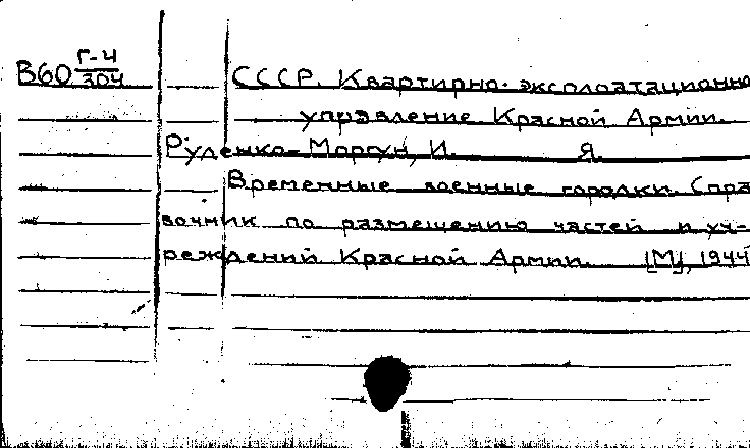 В60 Г-4/304
СССР. Квартирно-эксплоатационно
управление Красной Армии.
Руденко-Моргун, И. Я.
Временные военные городки. Спра
вочник по размещению частей и уч-
реждений Красной Армии. [М], 1944